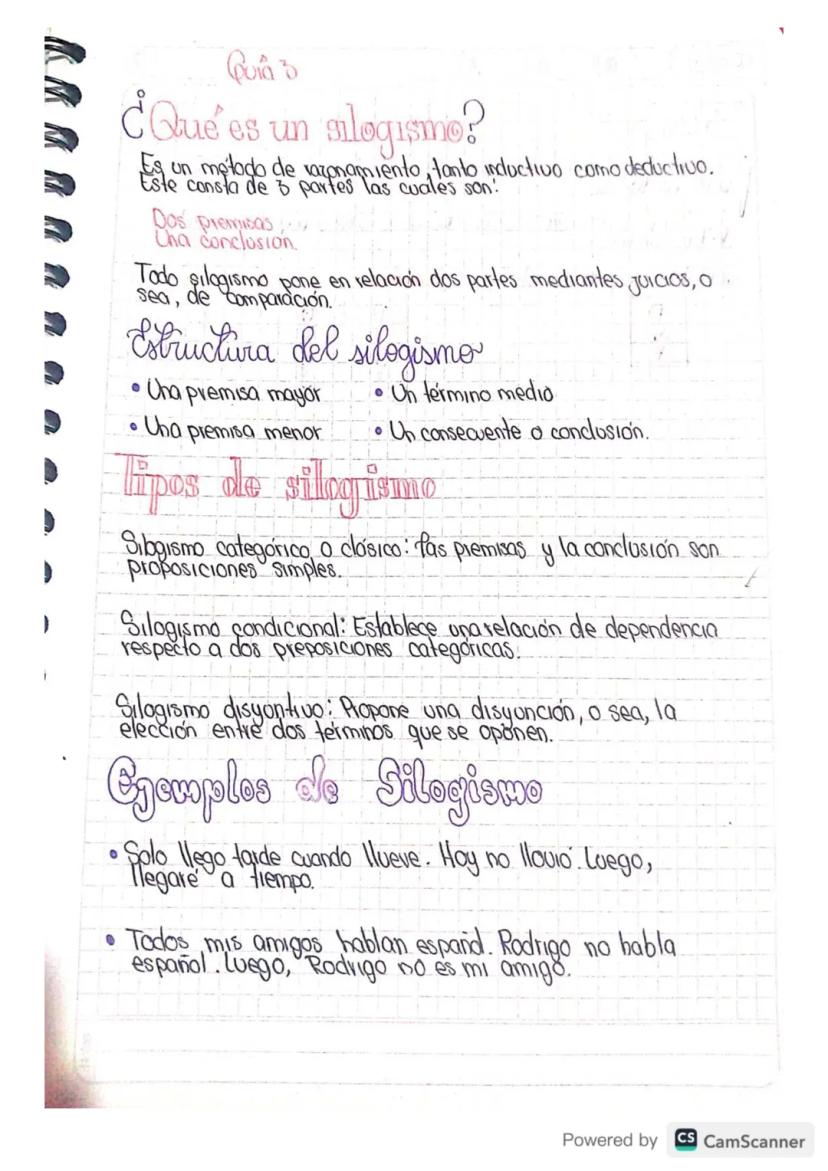 Guía 3
¿Qué es un silogismo?
Es un método de razonamiento, tanto inductivo como deductivo.
Este consta de 3 partes las cuales son:
Dos premisas
Una conclusión.
Todo silogismo pone en relación dos partes mediantes juicios, o
sea, de comparación.
Estructura del silogismo
• Una premisa mayor • Un término medio
• Una premisa menor • Un consecuente o conclusión.
Tipos de silogismo
Silogismo categórico o clásico: las premisas y la conclusión son
proposiciones simples.
Silogismo condicional: Establece una relación de dependencia
respecto a dos preposiciones categóricas.
Silogismo disyuntivo: Propone una disyunción, o sea, la
elección entre dos términos que se oponen.
Ejemplos de Silogismo
• Solo llego tarde cuando llueve. Hoy no llovió. Luego,
llegaré a tiempo.
• Todos mis amigos hablan español. Rodrigo no habla
español. Luego, Rodrigo no es mi amigo.
Powered by CS CamScanner